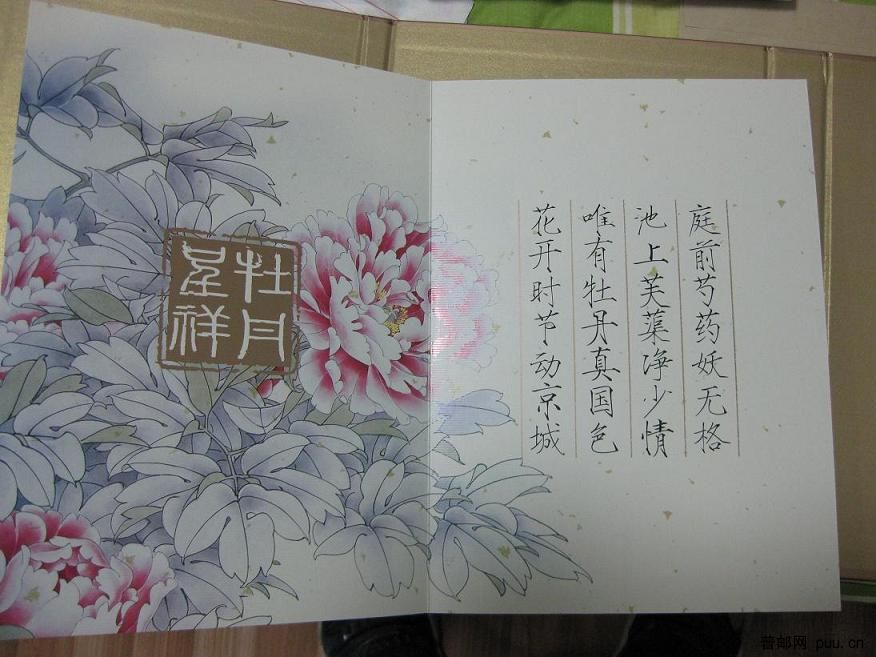 牡丹
呈祥
庭前芍药妖无格
池上芙蕖净少情
唯有牡丹真国色
花开时节动京城
普邮网 puu.cn